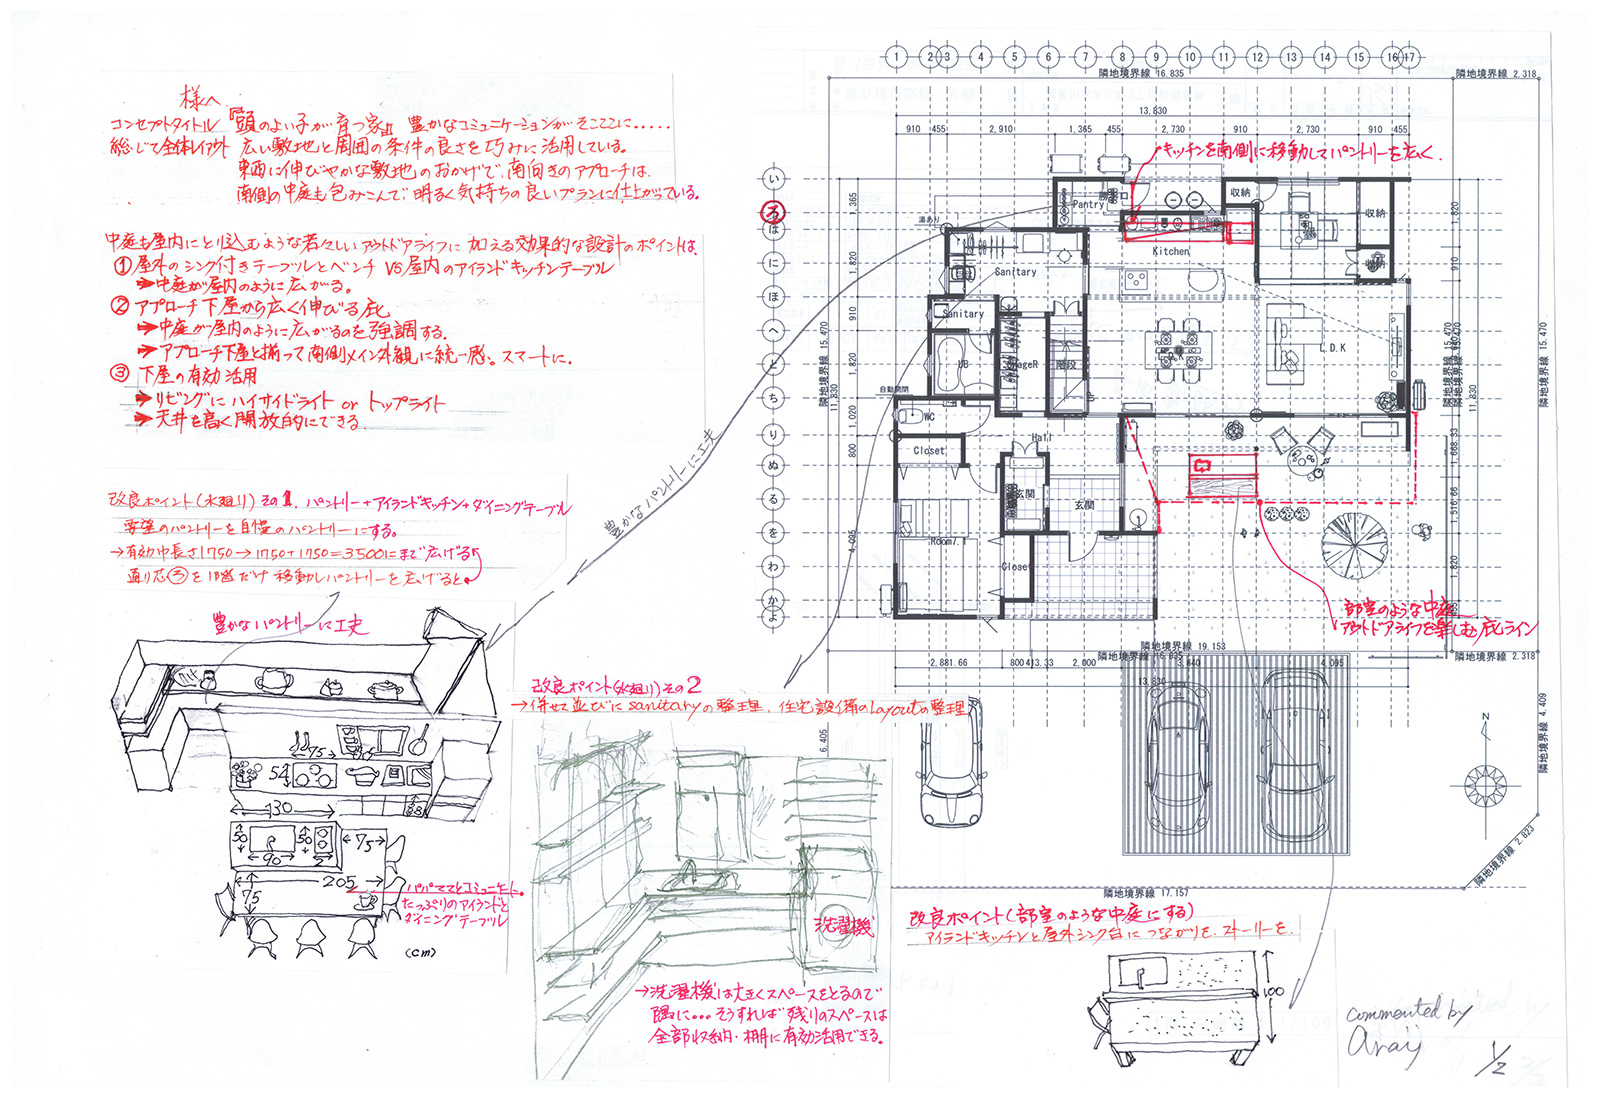 様へ
コンセプトタイトル『頭のよい子が育つ家』 豊かなコミュニケーションがそこここに.....
総じて全体レイアウト 広い敷地と周囲の条件の良さを巧みに活用している。
東西に伸びやかな敷地のおかげで、南向きのアプローチは、
南側の中庭も包みこんで明るく気持ちの良いプランに仕上がっている。
中庭も屋内にとり込むような若々しいアウトドアライフに加える効果的な設計のポイントは、
① 屋外のシンク付きテーブルとベンチ VS 屋内のアイランドキッチンテーブル
➔中庭が屋内のように広がる。
② アプローチ下屋から広く伸びる庇
➔中庭が屋内のように広がるのを強調する。
➔アプローチ下屋と揃って南側メイン外観に統一感。スマートに。
③ 下屋の有効活用
➔リビングにハイサイドライト or トップライト
➔天井を高く開放的にできる
改良ポイント(水廻り)その1. パントリー+アイランドキッチン+ダイニングテーブル
要望のパントリーを自慢のパントリーにする。
→有効巾長さ1750→1750+1750=3500にまで広げる
通り芯ろを だけ移動しパントリーを広げると、
豊かなパントリーに工夫
豊かなパントリーに工夫
75
54
130
88
50
50
90
75
75
205
パパママとコミュニケート。
たっぷりのアイランドと
ダイニングテーブル
(cm)
改良ポイント(水廻り)その2
→併せて並びにsanitaryの整理、住宅設備のLayoutの整理
洗濯機
→洗濯機は大きくスペースをとるので
隅に...そうすれば残りのスペースは
全部収納・棚に有効活用できる。
1 2 3 4 5 6 7 8 9 10 11 12 13 14 15 16 17
隣地境界線 16.835
隣地境界線 2.318
13.830
910 455 2,910 1,365 455 2,730 910 2,730 910
キッチンを南側に移動してパントリーを広く.
い
ろ
は
に
ほ
へ
と
ち
り
ぬ
る
を
わ
か
よ
1,365
1,820
910
1,820
1,020
800
4,095
隣地境界線 15.470
11.830
湯あり
自動開閉
Pantry
勝手口
収納
収納
収納
Kitchen
Sanitary
Sanitary
UB
階段
L.D.K
WC
Closet
Hall
玄関
玄関
Room7.1
Closet
1,820
910
1,668.33
1,516.66
1,820
隣地境界線 15.470
11.830
隣地境界線 15.470
部室のような中庭
アウトドアライフを楽しむ庇ライン
隣地境界線 19.153
隣地境界線 16.835
隣地境界線 2.318
2,881.66 800 413.33 2,000 3,640 4,095
13.830
6.405
隣地境界線 4.409
N
隣地境界線 2.823
隣地境界線 17.157
改良ポイント(部室のような中庭にする)
アイランドキッチンと屋外シンク台につながりを、ストーリーを、
100
commented by
Arai
1/2